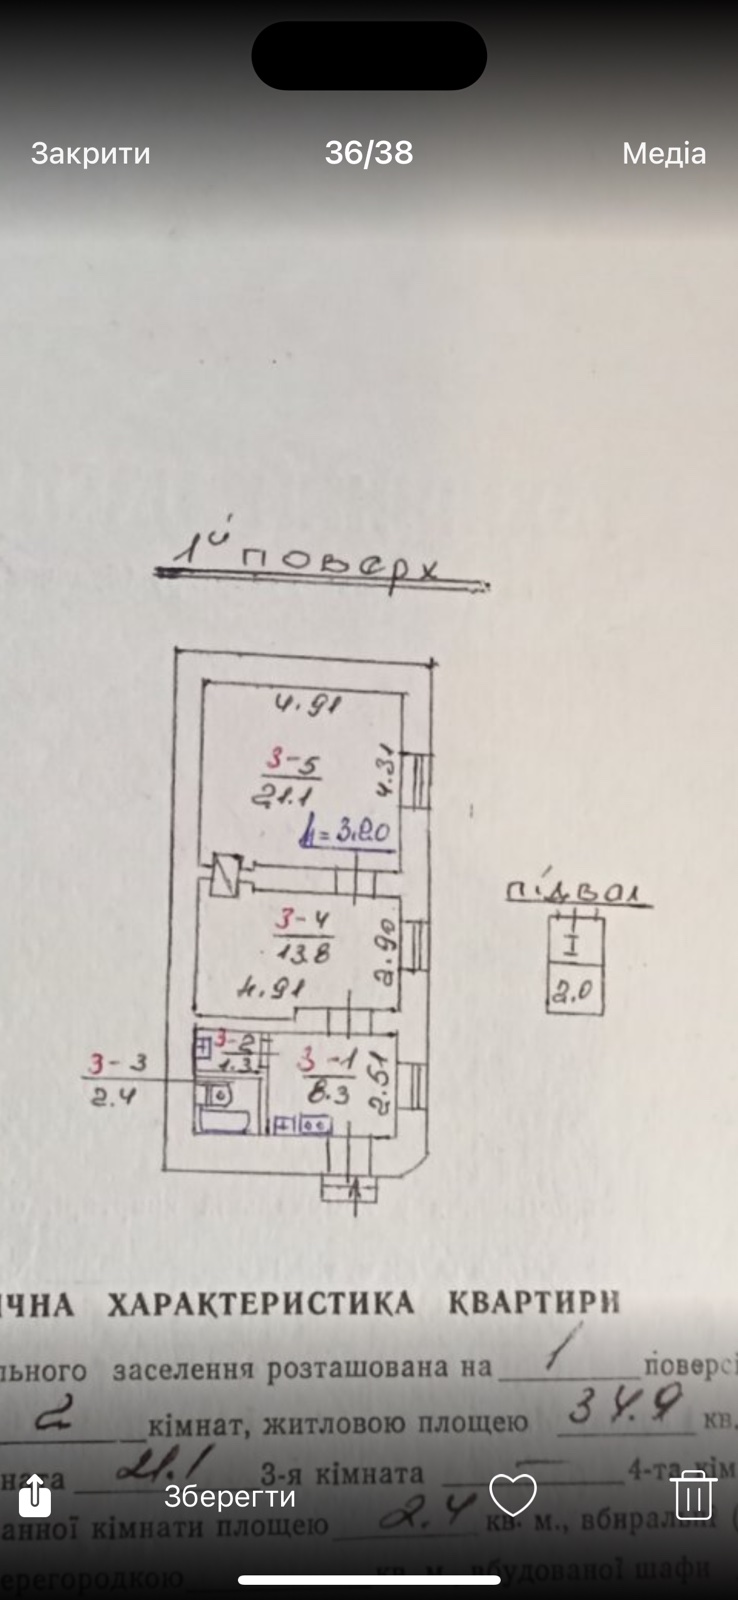 Закрити 36/38 Медіа
1й поверх
4.91
3-5
21.1
4.31
h=3.20
підвал
I
2.0
3-4
13.8
2.90
4.91
3-2
1.3
3-1
8.3
2.51
3-3
2.4
ІЧНА ХАРАКТЕРИСТИКА КВАРТИРИ
льного заселення розташована на 1 поверсі
2 кімнат, житловою площею 34.9 кв.
ната 21.1 3-я кімната — 4-та кім
Зберегти
анної кімнати площею 2.4 кв. м., вбиральні (
ерегородкою кв. м., вбудованої шафи